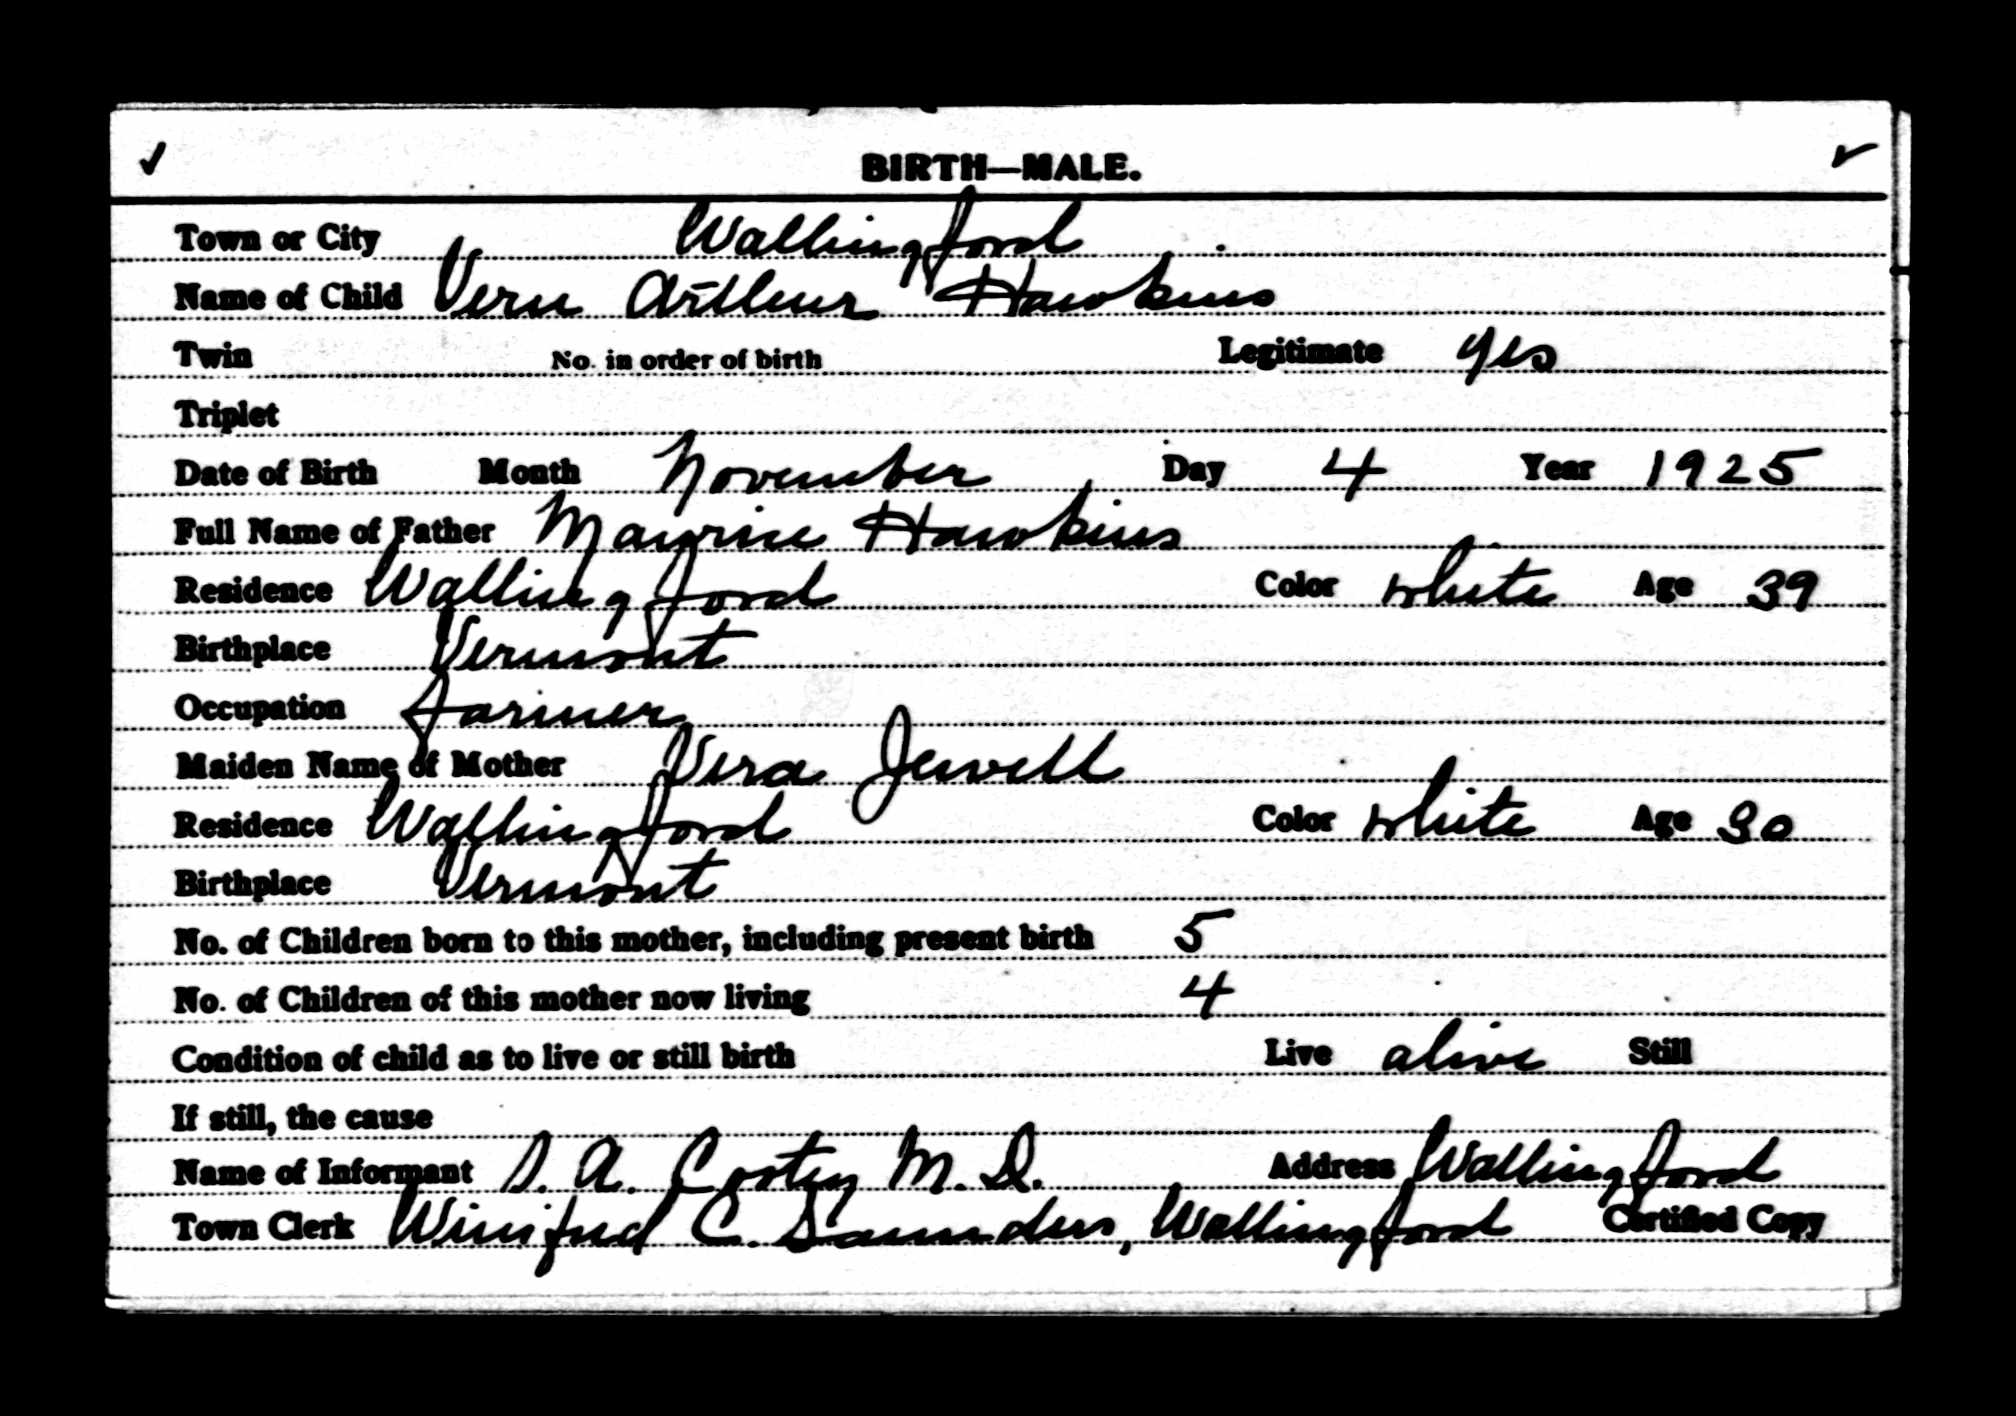 BIRTH—MALE.
Town or City Wallingford
Name of Child Vern Arthur Hawkins
Twin No. in order of birth Legitimate yes
Triplet
Date of Birth Month November Day 4 Year 1925
Full Name of Father Maurice Hawkins
Residence Wallingford Color white Age 39
Birthplace Vermont
Occupation farmer
Maiden Name of Mother Vera Jewell
Residence Wallingford Color white Age 30
Birthplace Vermont
No. of Children born to this mother, including present birth 5
No. of Children of this mother now living 4
Condition of child as to live or still birth Live alive Still
If still, the cause
Name of Informant S. A. Cootey M. D. Address Wallingford
Town Clerk Winifred C. Saunders, Wallingford Certified Copy